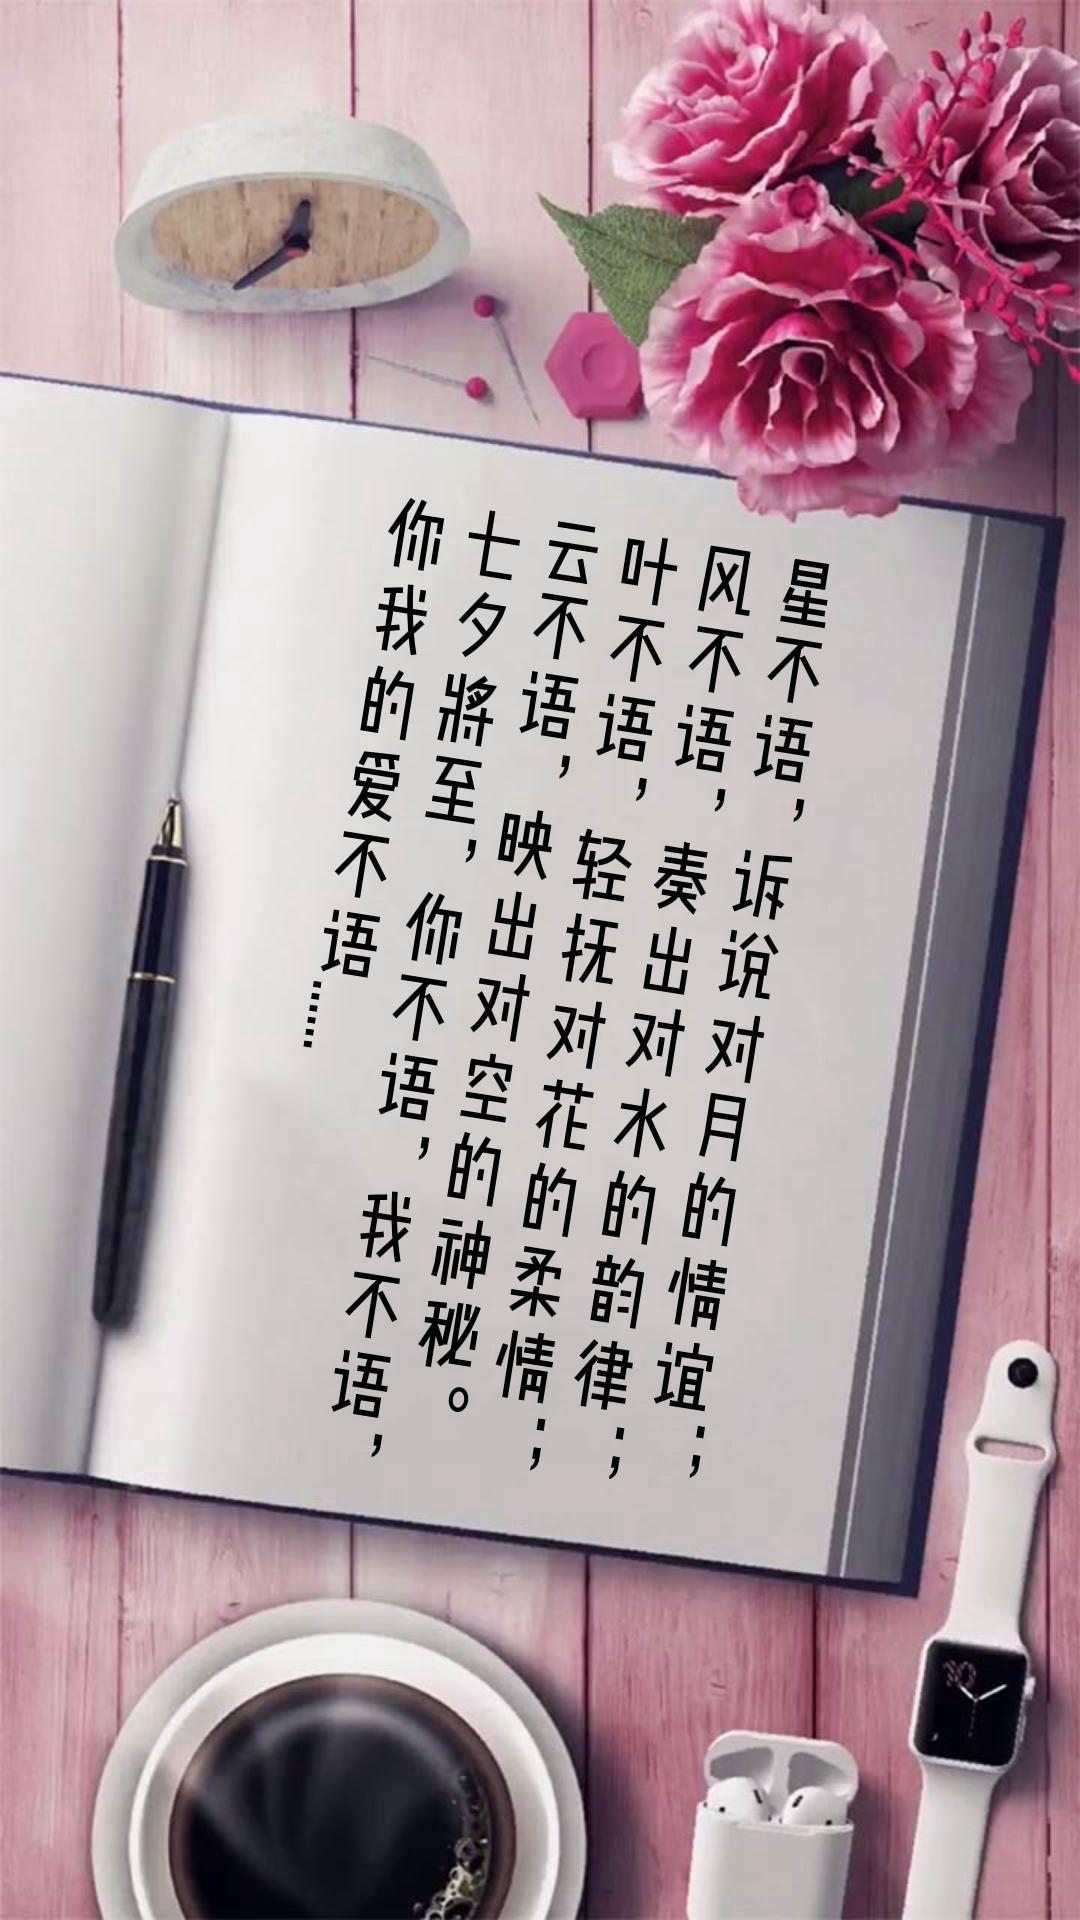 星不语，诉说对月的情谊；
风不语，奏出对水的韵律；
叶不语，轻抚对花的柔情；
云不语，映出对空的神秘。
七夕將至，你不语，我不语，
你我的爱不语……
10